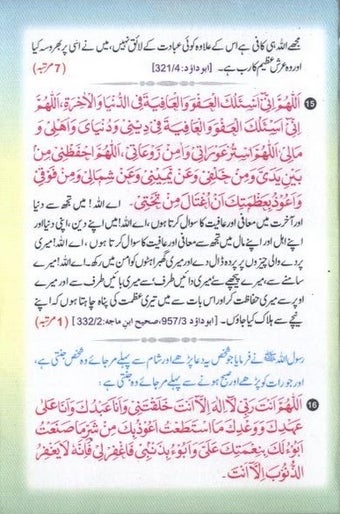 مجھے اللہ ہی کافی ہے اس کے علاوہ کوئی عبادت کے لائق نہیں، میں نے اسی پر بھروسہ کیا
اور وہ عرشِ عظیم کا رب ہے۔ [ابو داؤد:321/4] (7 مرتبہ)
15 اَللّٰهُمَّ اِنِّىْ اَسْئَلُكَ الْعَفْوَ وَالْعَافِيَةَ فِى الدُّنْيَا وَالْاٰخِرَةِ، اَللّٰهُمَّ
اِنِّىْ اَسْئَلُكَ الْعَفْوَ وَالْعَافِيَةَ فِىْ دِيْنِىْ وَدُنْيَاىَ وَاَهْلِىْ وَ
مَالِىْ اَللّٰهُمَّ اسْتُرْ عَوْرَاتِىْ وَاٰمِنْ رَوْعَاتِىْ، اَللّٰهُمَّ احْفَظْنِىْ مِنْ
بَيْنِ يَدَىَّ وَمِنْ خَلْفِىْ وَعَنْ يَّمِيْنِىْ وَعَنْ شِمَالِىْ وَمِنْ فَوْقِىْ
وَاَعُوْذُ بِعَظَمَتِكَ اَنْ اُغْتَالَ مِنْ تَحْتِىْ۔ اے اللہ! میں تجھ سے دنیا
اور آخرت میں معافی اور عافیت کا سوال کرتا ہوں، اے اللہ! میں اپنے دین، اپنی دنیا اور
اپنے اہل اور اپنے مال میں تجھ سے معافی اور عافیت کا سوال کرتا ہوں، اے اللہ! میرے
پردے والی چیزوں پر پردہ ڈال دے اور میری گھبراہٹوں کو امن میں رکھ۔ اے اللہ! میرے
سامنے سے، میرے پیچھے سے، میری دائیں طرف سے اور میری بائیں طرف سے اور میرے
اوپر سے میری حفاظت کر اور اس بات سے میں تیری عظمت کی پناہ چاہتا ہوں کہ اپنے
نیچے سے ہلاک کیا جاؤں۔ [ابو داؤد 957/3، صحیح ابنِ ماجہ:332/2] (1 مرتبہ)
رسول اللہ ﷺ نے فرمایا جو شخص یہ دعا پڑھے اور شام سے پہلے مر جائے وہ شخص جنتی ہے،
اور جو رات کو پڑھے اور صبح ہونے سے پہلے مر جائے وہ جنتی ہے:
16 اَللّٰهُمَّ اَنْتَ رَبِّىْ لَآ اِلٰهَ اِلَّا اَنْتَ خَلَقْتَنِىْ وَاَنَا عَبْدُكَ وَاَنَا عَلٰى
عَهْدِكَ وَوَعْدِكَ مَا اسْتَطَعْتُ اَعُوْذُ بِكَ مِنْ شَرِّ مَا صَنَعْتُ
اَبُوْءُ لَكَ بِنِعْمَتِكَ عَلَىَّ وَاَبُوْءُ بِذَنْبِىْ فَاغْفِرْ لِىْ فَاِنَّهٗ لَا يَغْفِرُ
الذُّنُوْبَ اِلَّا اَنْتَ۔